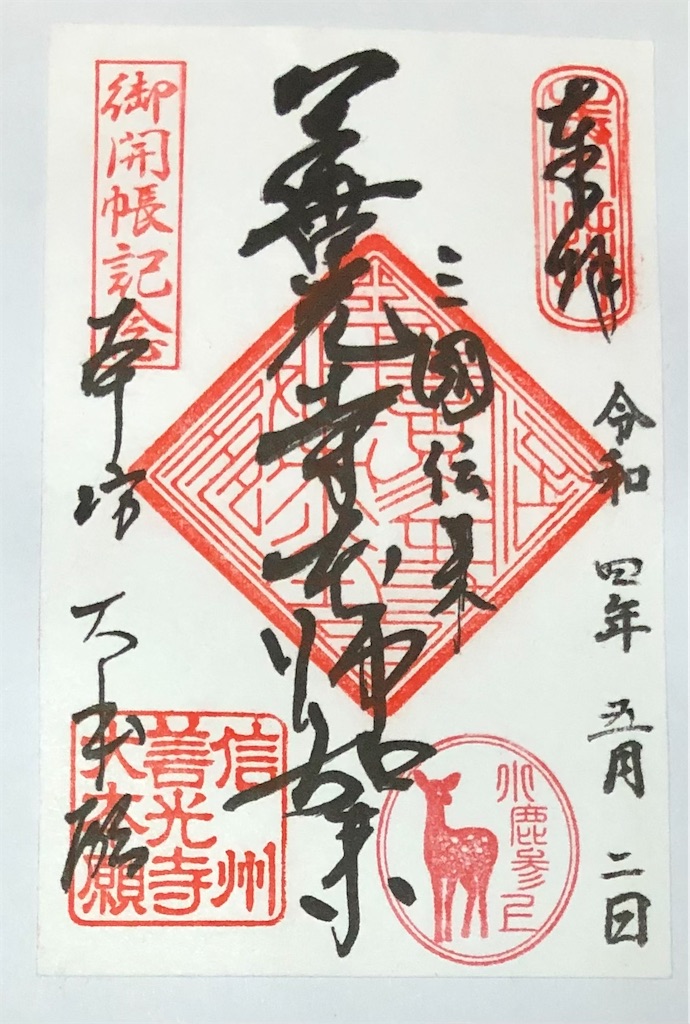 奉拝
令和四年五月二日
三國伝来
善光寺本師如来
御開帳記念
本坊 大本願
信州
善光寺
大本願
小鹿参